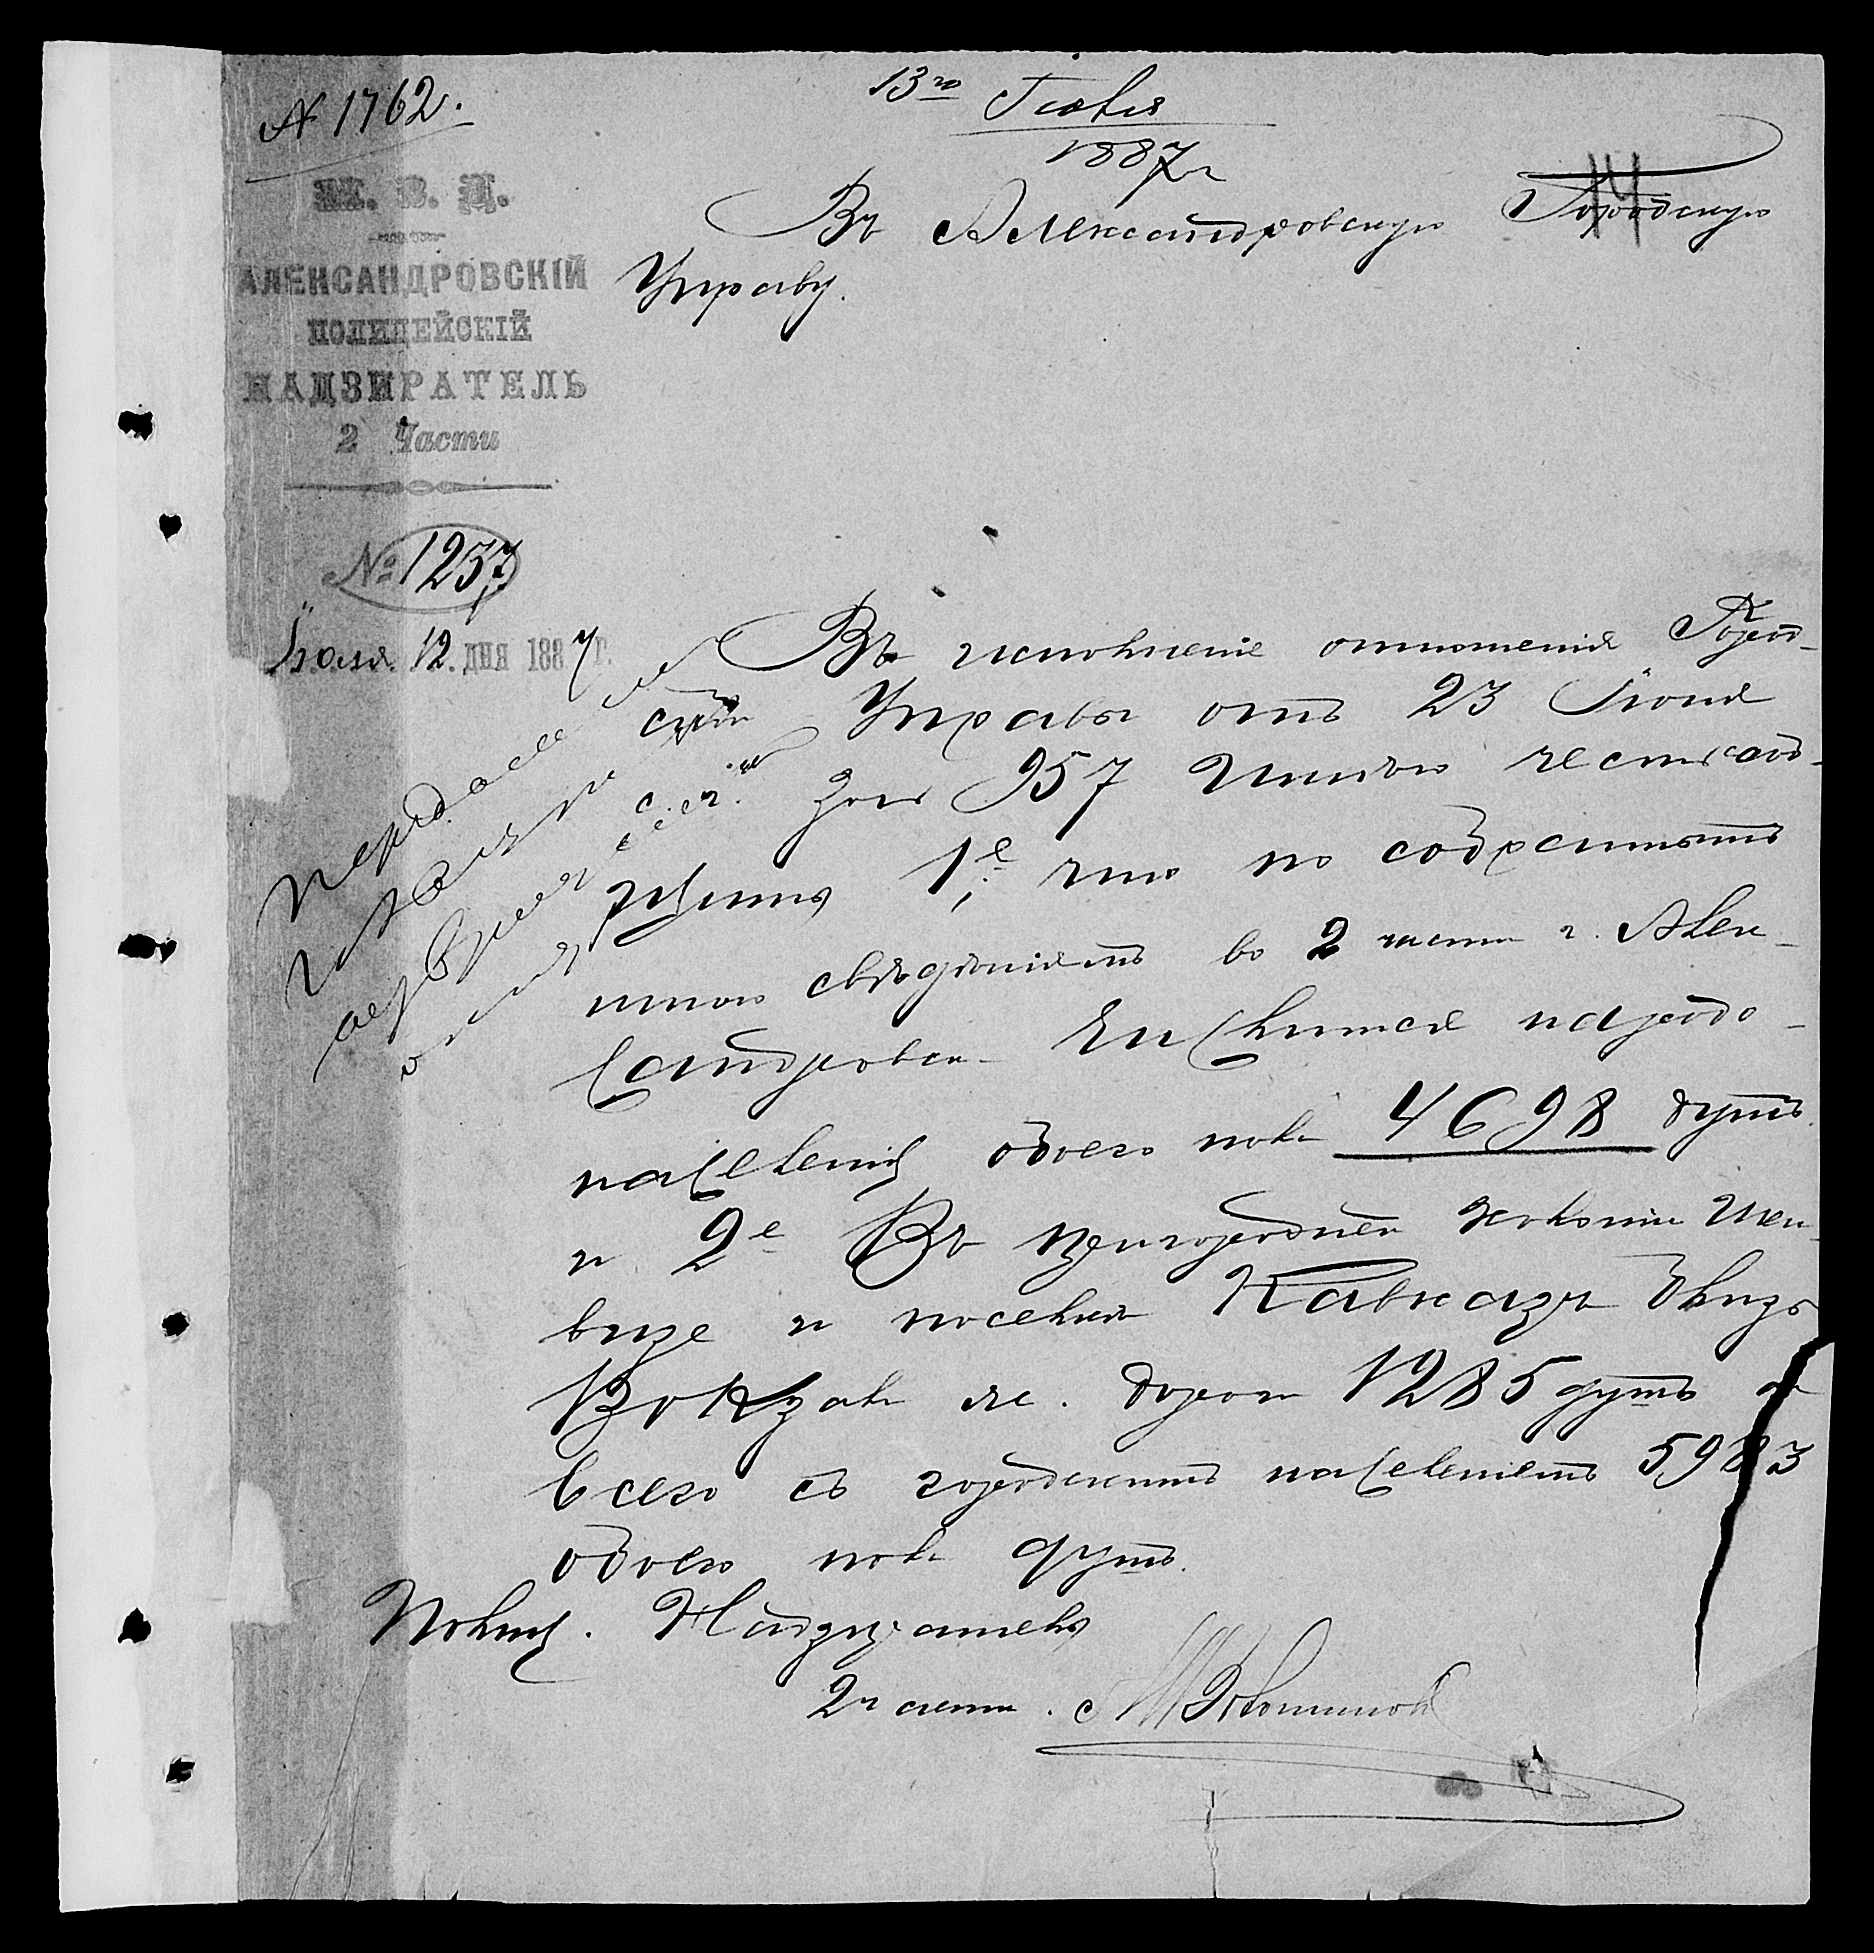 № 1762.
13го Іюля
1887 г
14
М. В. Д.
АЛЕКСАНДРОВСКІЙ
ПОЛИЦЕЙСКІЙ
НАДЗИРАТЕЛЬ
2 Части
№ 1257
Іюля 12 дня 1887 г.
Въ Александровскую Городскую
Управу.
Въ исполненіе отношенія Город-
ской Управы отъ 23 Іюня
за № 957 имѣю честь сооб-
щить 1е, что по собраннымъ
мною свѣдѣніямъ во 2 части г. Алек-
сандровска числится народо-
населенія обоего пола 4698 душъ
и 2е Въ пригородней колоніи Шен-
визе и поселка Кавказъ близь
Вокзала ж. дороги 1285 душъ а
всего съ городскимъ населеніемъ 5983
обоего пола душъ.
Полиц. Надзиратель
2 части